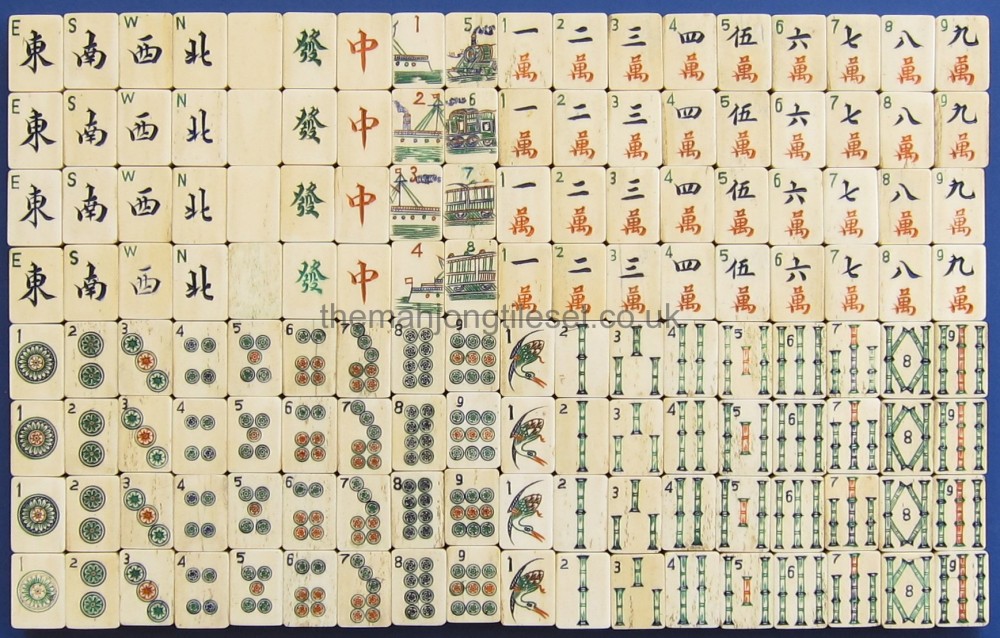 E 東 S 南 W 西 N 北 發 中 1 5 1 一 萬 2 二 萬 3 三 萬 4 四 萬 5 伍 萬 6 六 萬 7 七 萬 8 八 萬 9 九 萬
E 東 S 南 W 西 N 北 發 中 2 6 1 一 萬 2 二 萬 3 三 萬 4 四 萬 5 伍 萬 6 六 萬 7 七 萬 8 八 萬 9 九 萬
E 東 S 南 W 西 N 北 發 中 3 7 1 一 萬 2 二 萬 3 三 萬 4 四 萬 5 伍 萬 6 六 萬 7 七 萬 8 八 萬 9 九 萬
E 東 S 南 W 西 N 北 發 中 4 8 1 一 萬 2 二 萬 3 三 萬 4 四 萬 5 伍 萬 6 六 萬 7 七 萬 8 八 萬 9 九 萬
themahjongtileset.co.uk
1 2 3 4 5 6 7 8 9 1 2 3 4 5 6 7 8 9
1 2 3 4 5 6 7 8 9 1 2 3 4 5 6 7 8 9
1 2 3 4 5 6 7 8 9 1 2 3 4 5 6 7 8 9
1 2 3 4 5 6 7 8 9 1 2 3 4 5 6 7 8 9